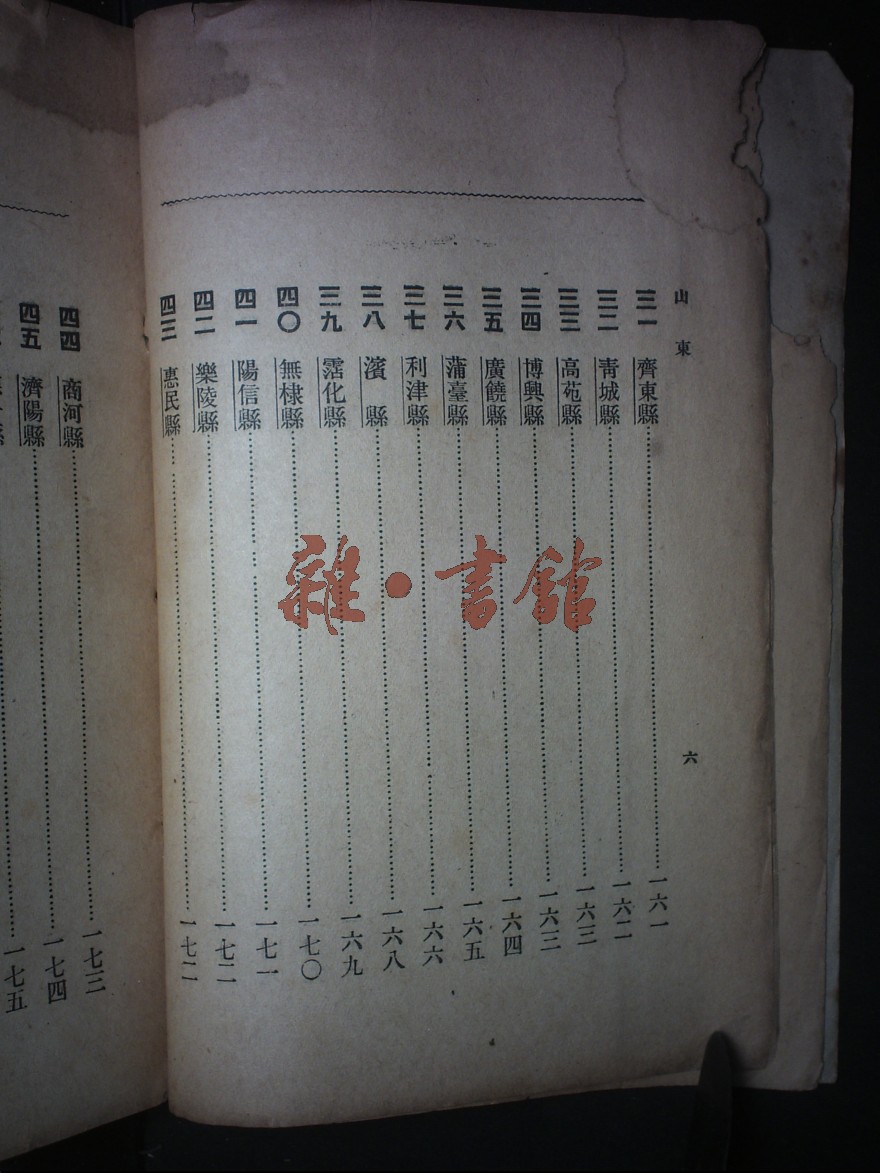 山東
六
三一 齊東縣……一六一
三二 青城縣……一六二
三三 高苑縣……一六三
三四 博興縣……一六三
三五 廣饒縣……一六四
三六 蒲臺縣……一六五
三七 利津縣……一六六
三八 濱縣……一六八
三九 霑化縣……一六九
四〇 無棣縣……一七〇
四一 陽信縣……一七一
四二 樂陵縣……一七二
四三 惠民縣……一七二
四四 商河縣……一七三
四五 濟陽縣……一七四
一七五
雜·書館